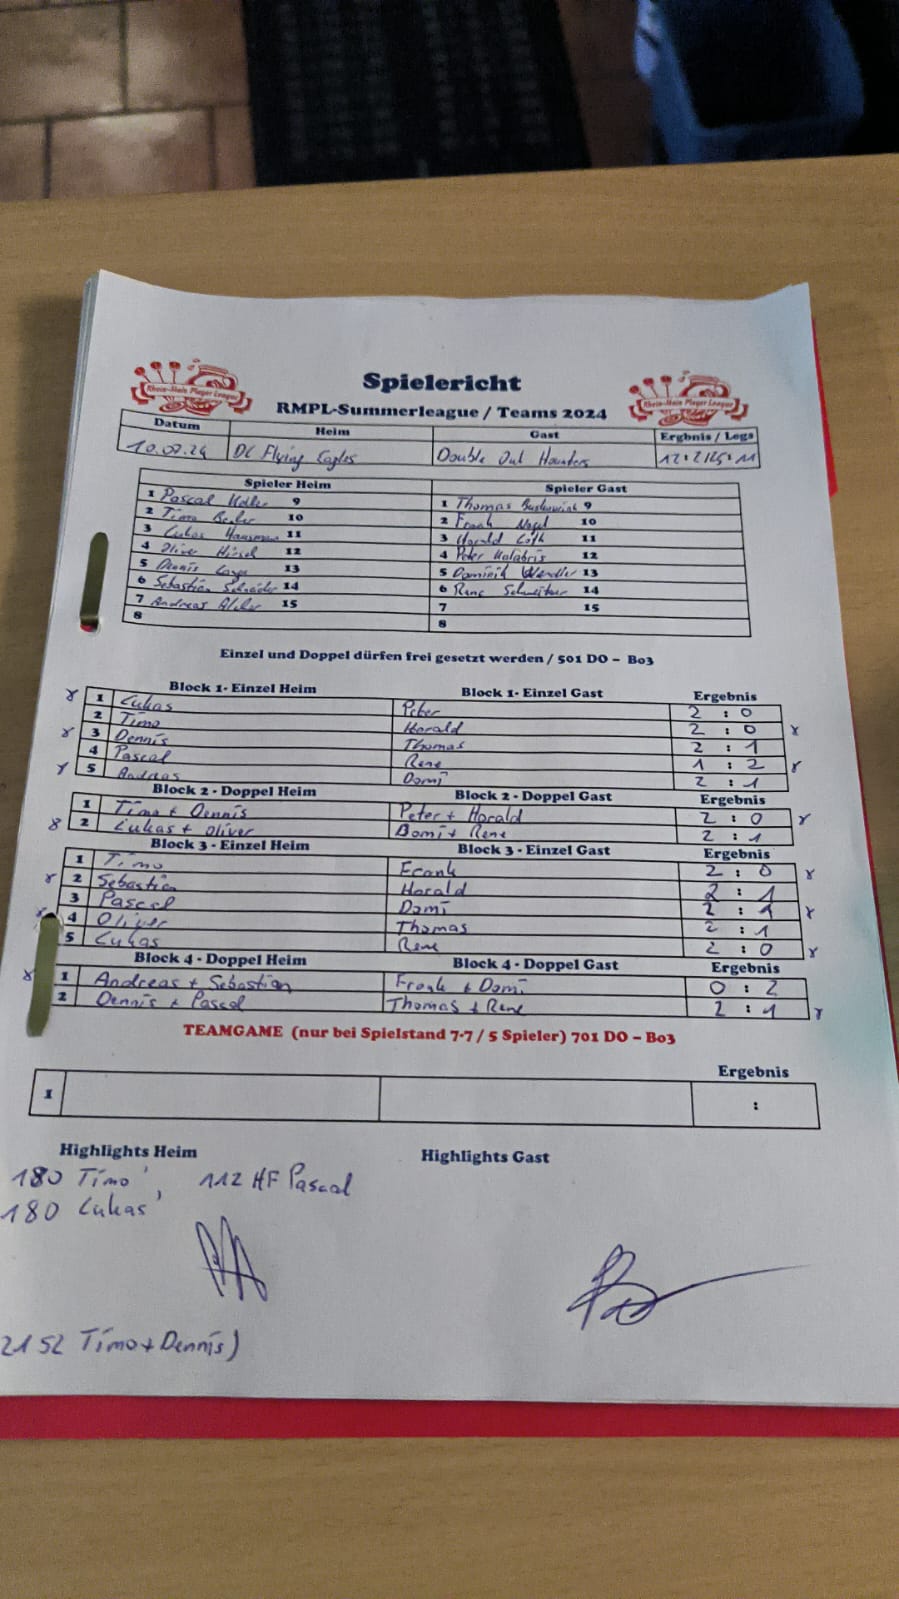 Rhein-Main Player League
Rhein-Main Player League
Spielericht
RMPL-Summerleague / Teams 2024
Datum Heim Gast Ergbnis / Legs
10.07.24 DC Flying Eagles Double Out Hounters 12:2 / 25:11
Spieler Heim Spieler Gast
1 Pascal 9 1 Thomas 9
2 Timo 10 2 Frank Nagel 10
3 Lukas 11 3 Harald 11
4 Oliver 12 4 Peter Kalabris 12
5 Dennis 13 5 Dominik Wendler 13
6 Sebastian Schröder 14 6 Rene 14
7 Andreas 15 7 15
8 8
Einzel und Doppel dürfen frei gesetzt werden / 501 DO – Bo3
Block 1- Einzel Heim Block 1- Einzel Gast Ergebnis
1 Lukas Peter 2 : 0
2 Timo Harald 2 : 0
3 Dennis Thomas 2 : 1
4 Pascal Rene 1 : 2
5 Andreas Domi 2 : 1
Block 2 - Doppel Heim Block 2 - Doppel Gast Ergebnis
1 Timo + Dennis Peter + Harald 2 : 0
2 Lukas + Oliver Domi + Rene 2 : 1
Block 3 - Einzel Heim Block 3 - Einzel Gast Ergebnis
1 Timo Frank 2 : 0
2 Sebastian Harald 2 : 1
3 Pascal Domi 2 : 1
4 Oliver Thomas 2 : 1
5 Lukas Rene 2 : 0
Block 4 - Doppel Heim Block 4 - Doppel Gast Ergebnis
1 Andreas + Sebastian Frank + Domi 0 : 2
2 Dennis + Pascal Thomas + Rene 2 : 1
TEAMGAME (nur bei Spielstand 7-7 / 5 Spieler) 701 DO – Bo3
Ergebnis
1 :
Highlights Heim Highlights Gast
180 Timo' 112 HF Pascal
180 Lukas'
2152 Timo + Dennis)